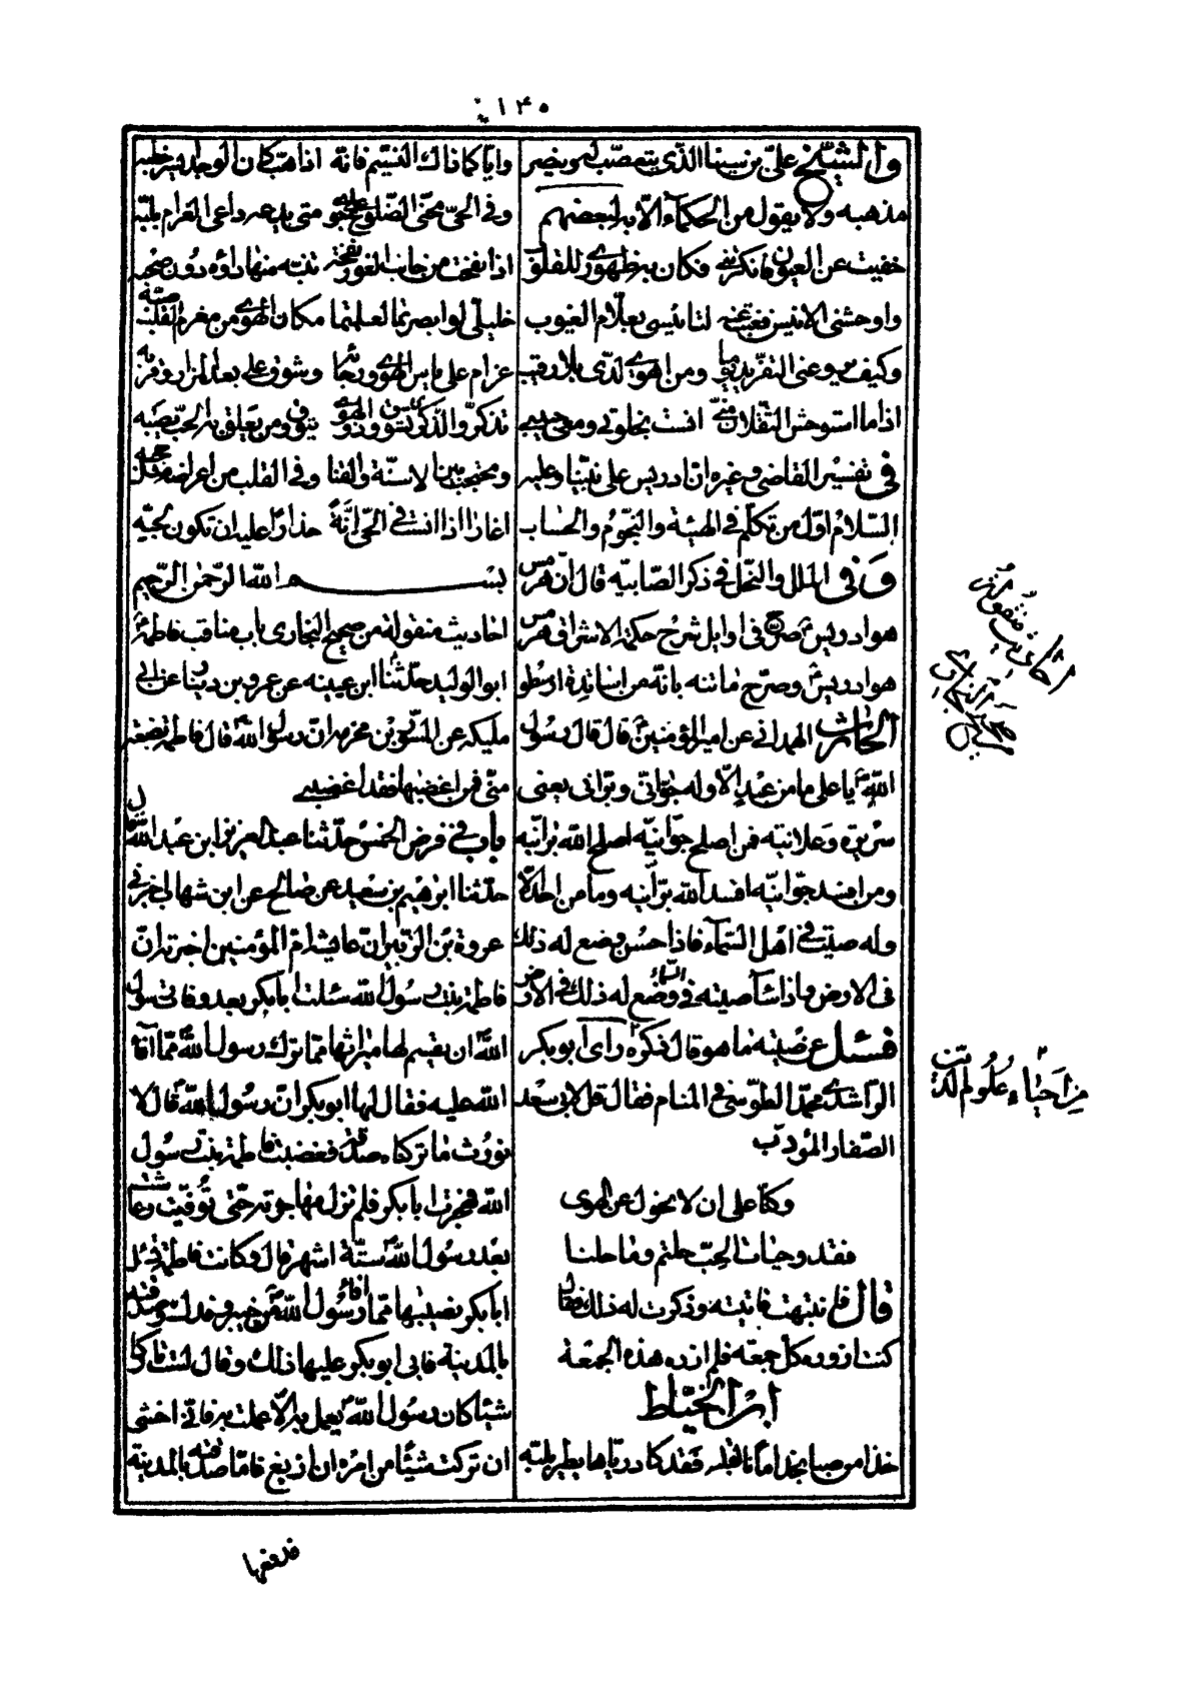 ١٤٥
والشيخ على بن سينا الذى يتعصّب له وينصر
مذهبه ولا يقول من الحكمآء الّا به لبعضهم
خفيت عن العيون فانكرتنى فكان به ظهورى للقلوب
واوحشنى الانيس فغبت عنه لتانيسى بعلّام الغيوب
وكيف يروعنى التفريد يوما ومن اهوى لدىّ بلا رقيب
اذا ما استوحش الثّقلان منّى انست بخلوتى ومعى حبيبى
فى تفسير القاضى وغيره ان ادريس على نبيّنا وعليه
السّلام اوّل من تكلّم فى الهيئة والنّجوم والحساب
وفى الملل والنحل فى ذكر الصّابيّه قال انّ هرمس
هو ادريس صرّح فى اوايل شرح حكمة الاشراق هرمس
هو ادريس وصرّح ماتنه بانّه من اساتذة ارسطو
الحارث الهمدانى عن امير المؤمنين قال قال رسول
الله يا على ما من عبد الّا وله جوّانى وبرّانى يعنى
سريرة وعلانيته فمن اصلح جوّانيّه اصلح الله برّانيّه
ومن افسد جوّانيّه افسد الله برّانيّه وما من احد الّا
وله صيت فى اهل السّمآء فاذا حسن وضع له ذلك
فى الارض واذا سآء صيته فى السّماء وضع له ذلك فى الارض
فسئل عن صيته ما هو قال ذكره راى ابو بكر
الراشدى محمّد الطوسى فى المنام فقال قل لابى سعد
الصّفار المؤدّب
وكنّا على ان لا نحول عن الهوى
فقد وحيات الحبّ حلتم وما حلنا
قال فانتبهت فاتيته وذكرت له ذلك فقال
كنت ازوره كلّ جمعة فلم ازره هذه الجمعة
ابن الخيّاط
خذا من صبا نجد امانا لقلبه فقد كاد ريّاها يطير بلبّه
وايّاكما ذاك النّسيم فانّه اذا هبّ كان الوجد ايسر خطبه
وفى الحىّ محنىّ الضّلوع على جوى متى يدعه داعى الغرام يلبّه
اذا نفحت من جانب الغور نفحة تنبّه منها داؤه دون صحبه
خليلىّ لو ابصرتما لعلمتما مكان الهوى من مغرم القلب صبّه
غرام على ياس الهوى ورجائه وشوق على بعد المزار وقربه
تذكّر والذكرى تشوق وذو الهوى يتوق ومن يعلق به الحبّ يصبه
ومحتجب بين الاسنّة والقنا وفى القلب من اعراضه مثل حجبه
اغار اذا انست فى الحىّ انّة حذارا عليه ان تكون لحبّه
بسم الله الرّحمن الرّحيم
احاديث منقولة من صحيح البخارى باب مناقب فاطمة
ابو الوليد حدّثنا ابن عيينه عن عمرو بن دينار عن ابى
مليكه عن المسور بن مخرمه ان رسول الله قال فاطمة بضعة
منّى فمن اغضبها فقد اغضبنى
باب فى فرض الخمس حدّثنا عبد العزيز ابن عبد الله قال
حدّثنا ابرهيم بن سعيد عن صالح عن ابن شهاب اخبرنى
عروة بن الزبير انّ عايشه امّ المؤمنين اخبرته انّ
فاطمة بنت رسول الله سئلت ابا بكر بعد وفات رسول
الله ان يقسم لها ميراثها ممّا ترك رسول الله ممّا آفا
الله عليه فقال لها ابو بكر ان رسول الله قال لا
نورث ما تركناه صدقة فغضبت فاطمة بنت رسول
الله فهجرت ابا بكر فلم تزل مهاجرته حتّى توفّيت وعاشت
بعد رسول الله ستّة اشهر قال وكانت فاطمة تسئل
ابا بكر نصيبها ممّا افاء رسول الله من خيبر وفدك وصدقته
بالمدينة فابى ابو بكر عليها ذلك وقال لست تاركا
شيئا كان رسول الله يعمل به الّا عملت به فانّى اخشى
ان تركت شيئا من امره ان ازيغ فامّا صدقته بالمدينة
احاديث منقوله من
صحيح البخارى
من احياء علوم الدين
فدفعها